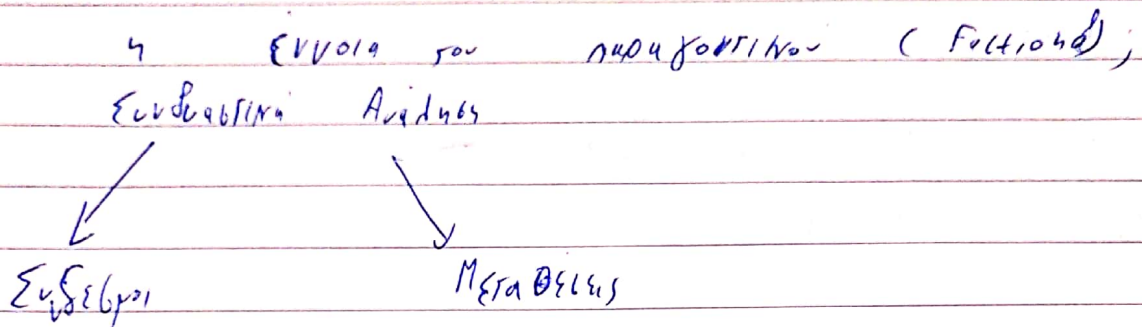 η έννοια του παραγοντικου (Fuctional);
Συνδυαστικη Ανάλυση
Συνδεσμοι Μεταθεσεις